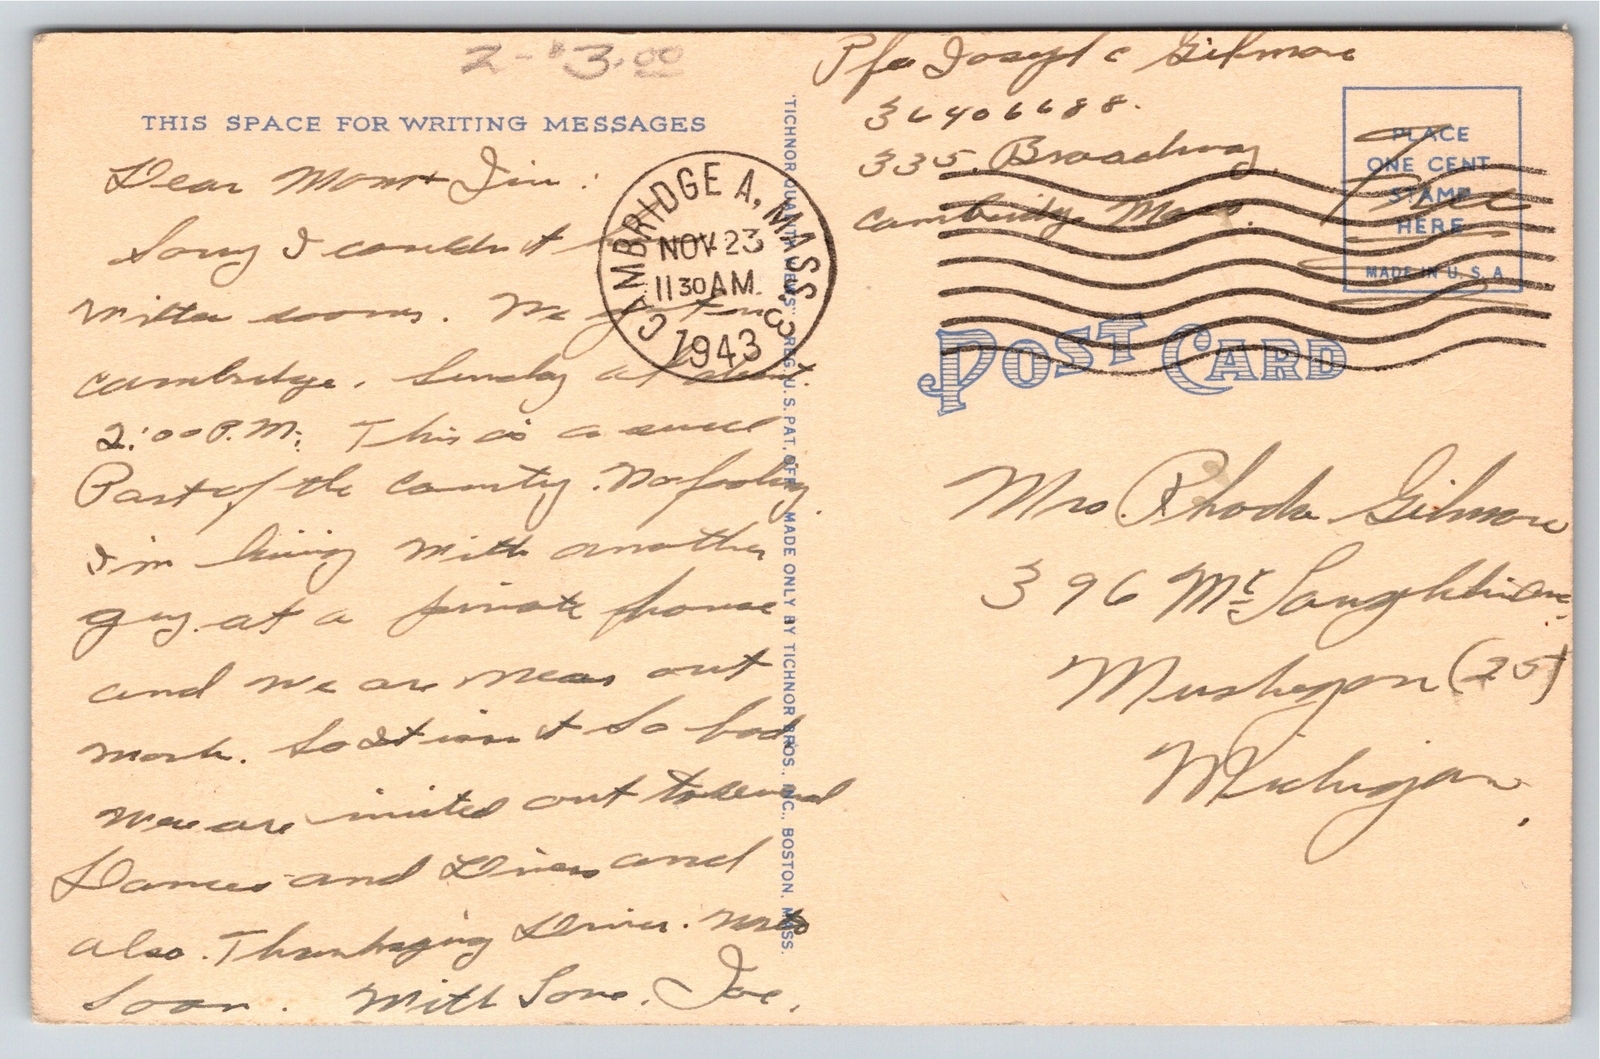 2-$3.00
THIS SPACE FOR WRITING MESSAGES
Dear Mom & Jim:
Sorry I couldn't
written sooner. We got in
Cambridge. Sunday at about
2:00 P.M. This is a swell
Part of the country. No fooling
I'm living with another
guy at a private house
and we are near out
work. So it isn't so bad
We are invited out to several
Dances and Diners and
also. Thanksgiving Dinner. Write
Soon. With Love, Joe.
CAMBRIDGE A, MASS. 3
NOV 23
11 30 AM
1943
"TICHNOR QUALITY VIEWS" REG. U.S. PAT. OFF. MADE ONLY BY TICHNOR BROS., INC., BOSTON, MASS.
Pfc Joseph C Gilmore
36406688.
335 Broadway
Cambridge Mass.
PLACE
ONE CENT
STAMP
HERE
MADE IN U.S.A
Free
POST CARD
Mrs. Rhoda Gilmore
396 McLaughlin Ave.
Muskegon (25)
Michigan.